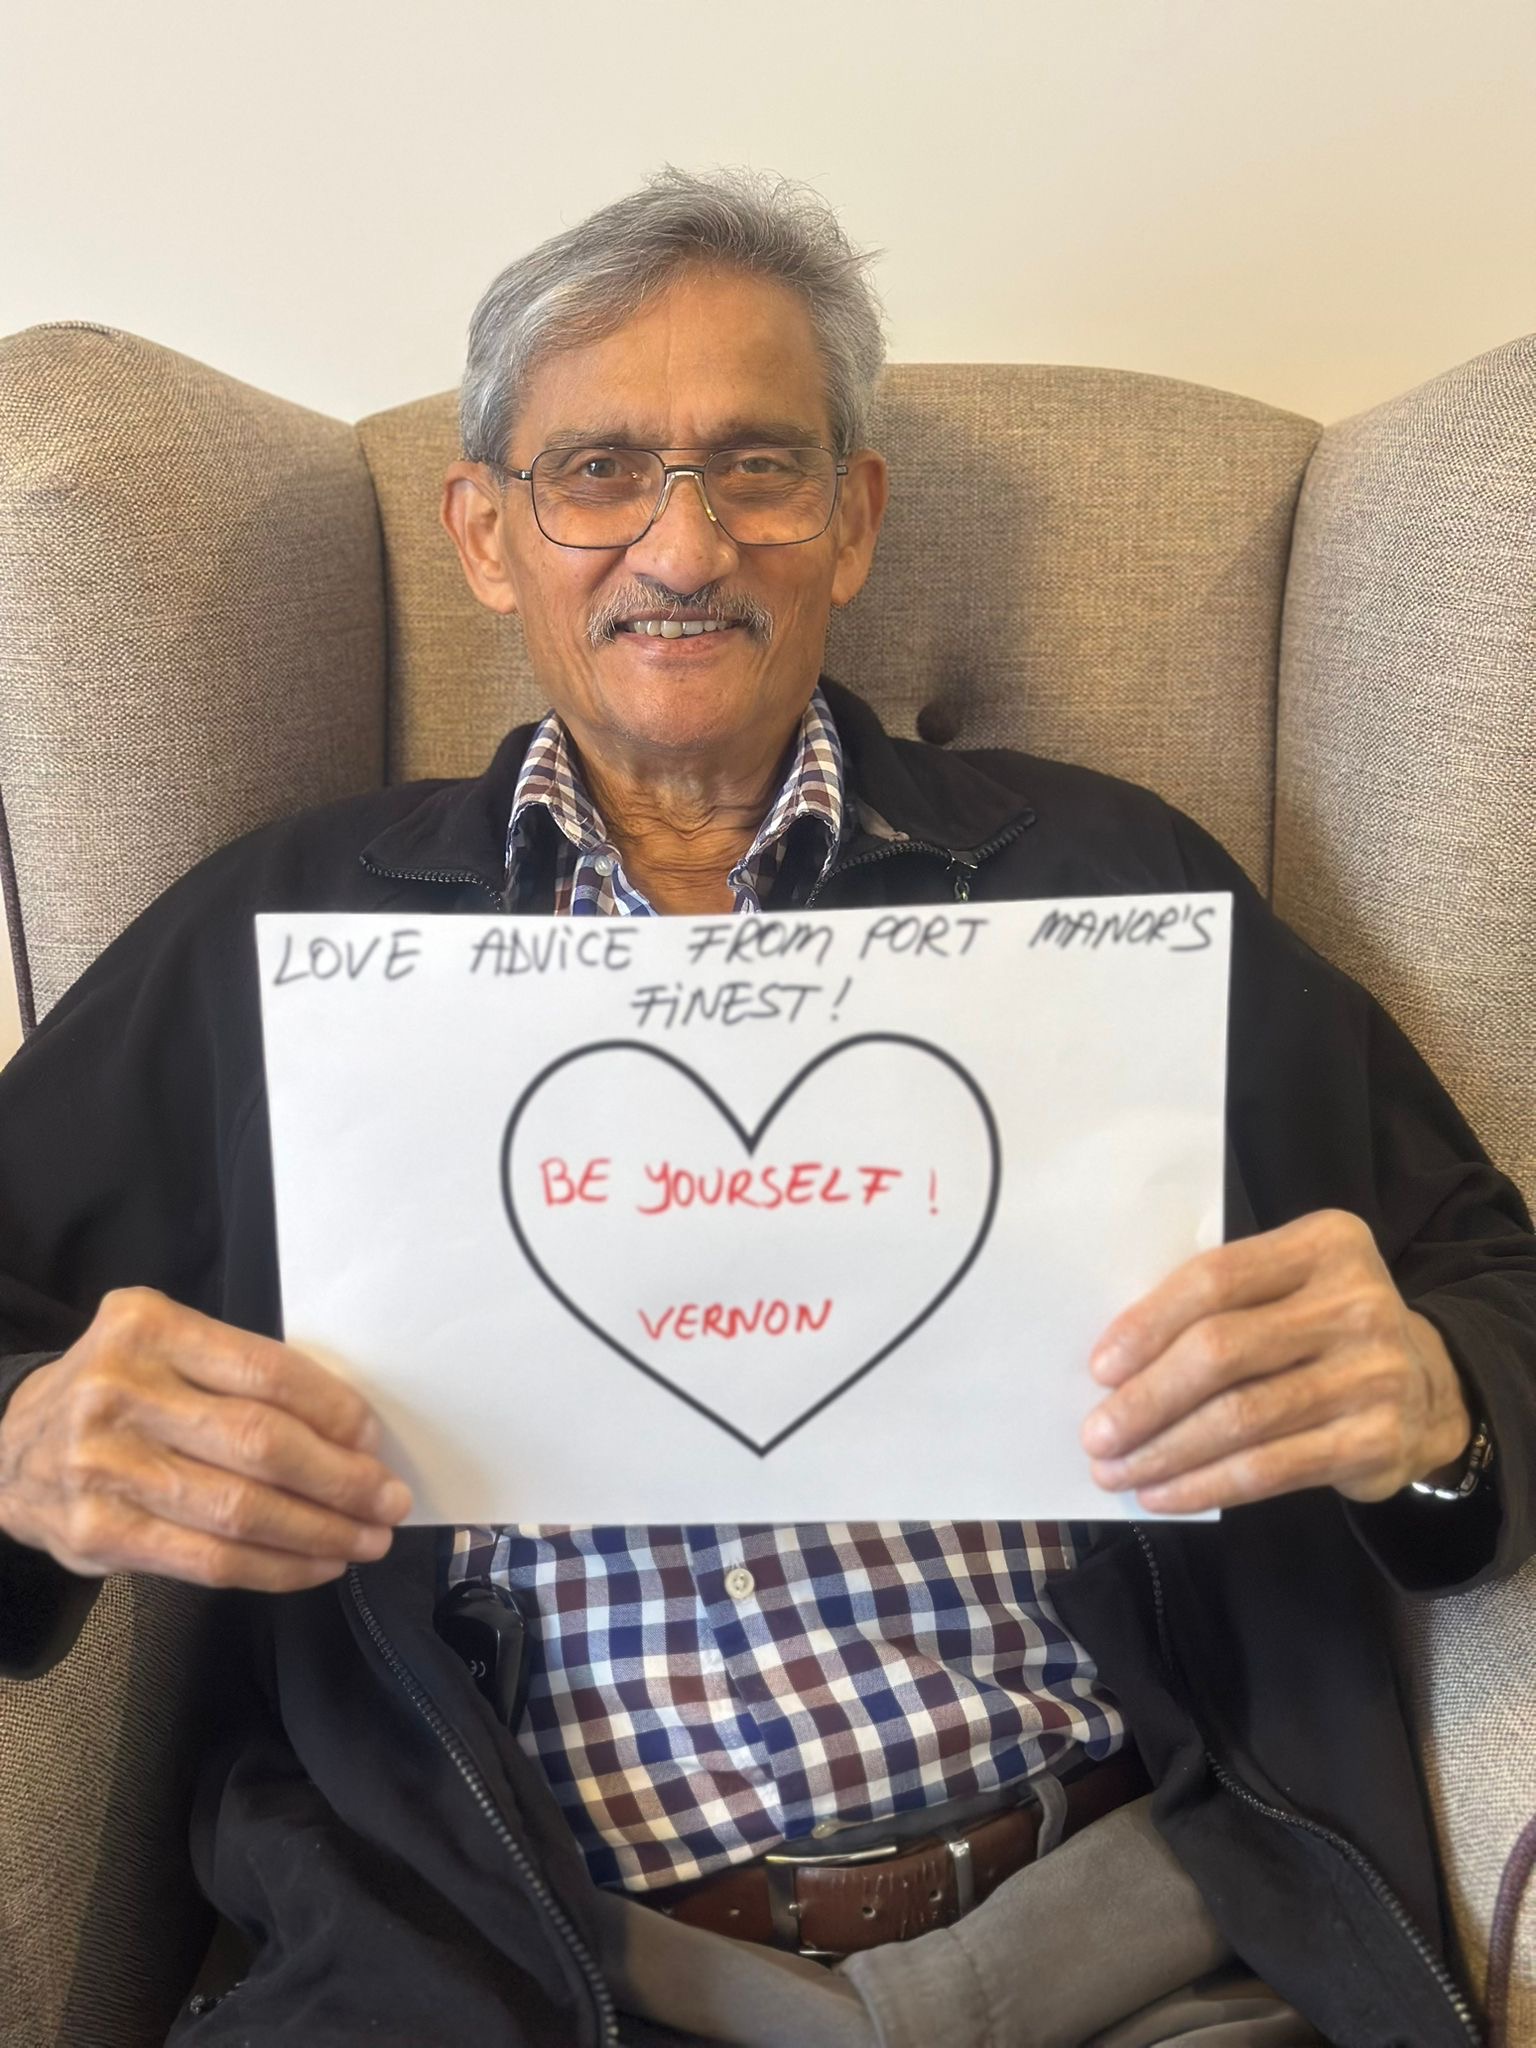 LOVE ADViCE FROM PORT MANOR'S
FiNEST!
BE YOURSELF!
VERNON
CE